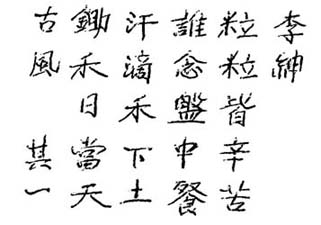 古風 其一
鋤禾日當天
汗滴禾下土
誰念盤中餐
粒粒皆辛苦
李紳